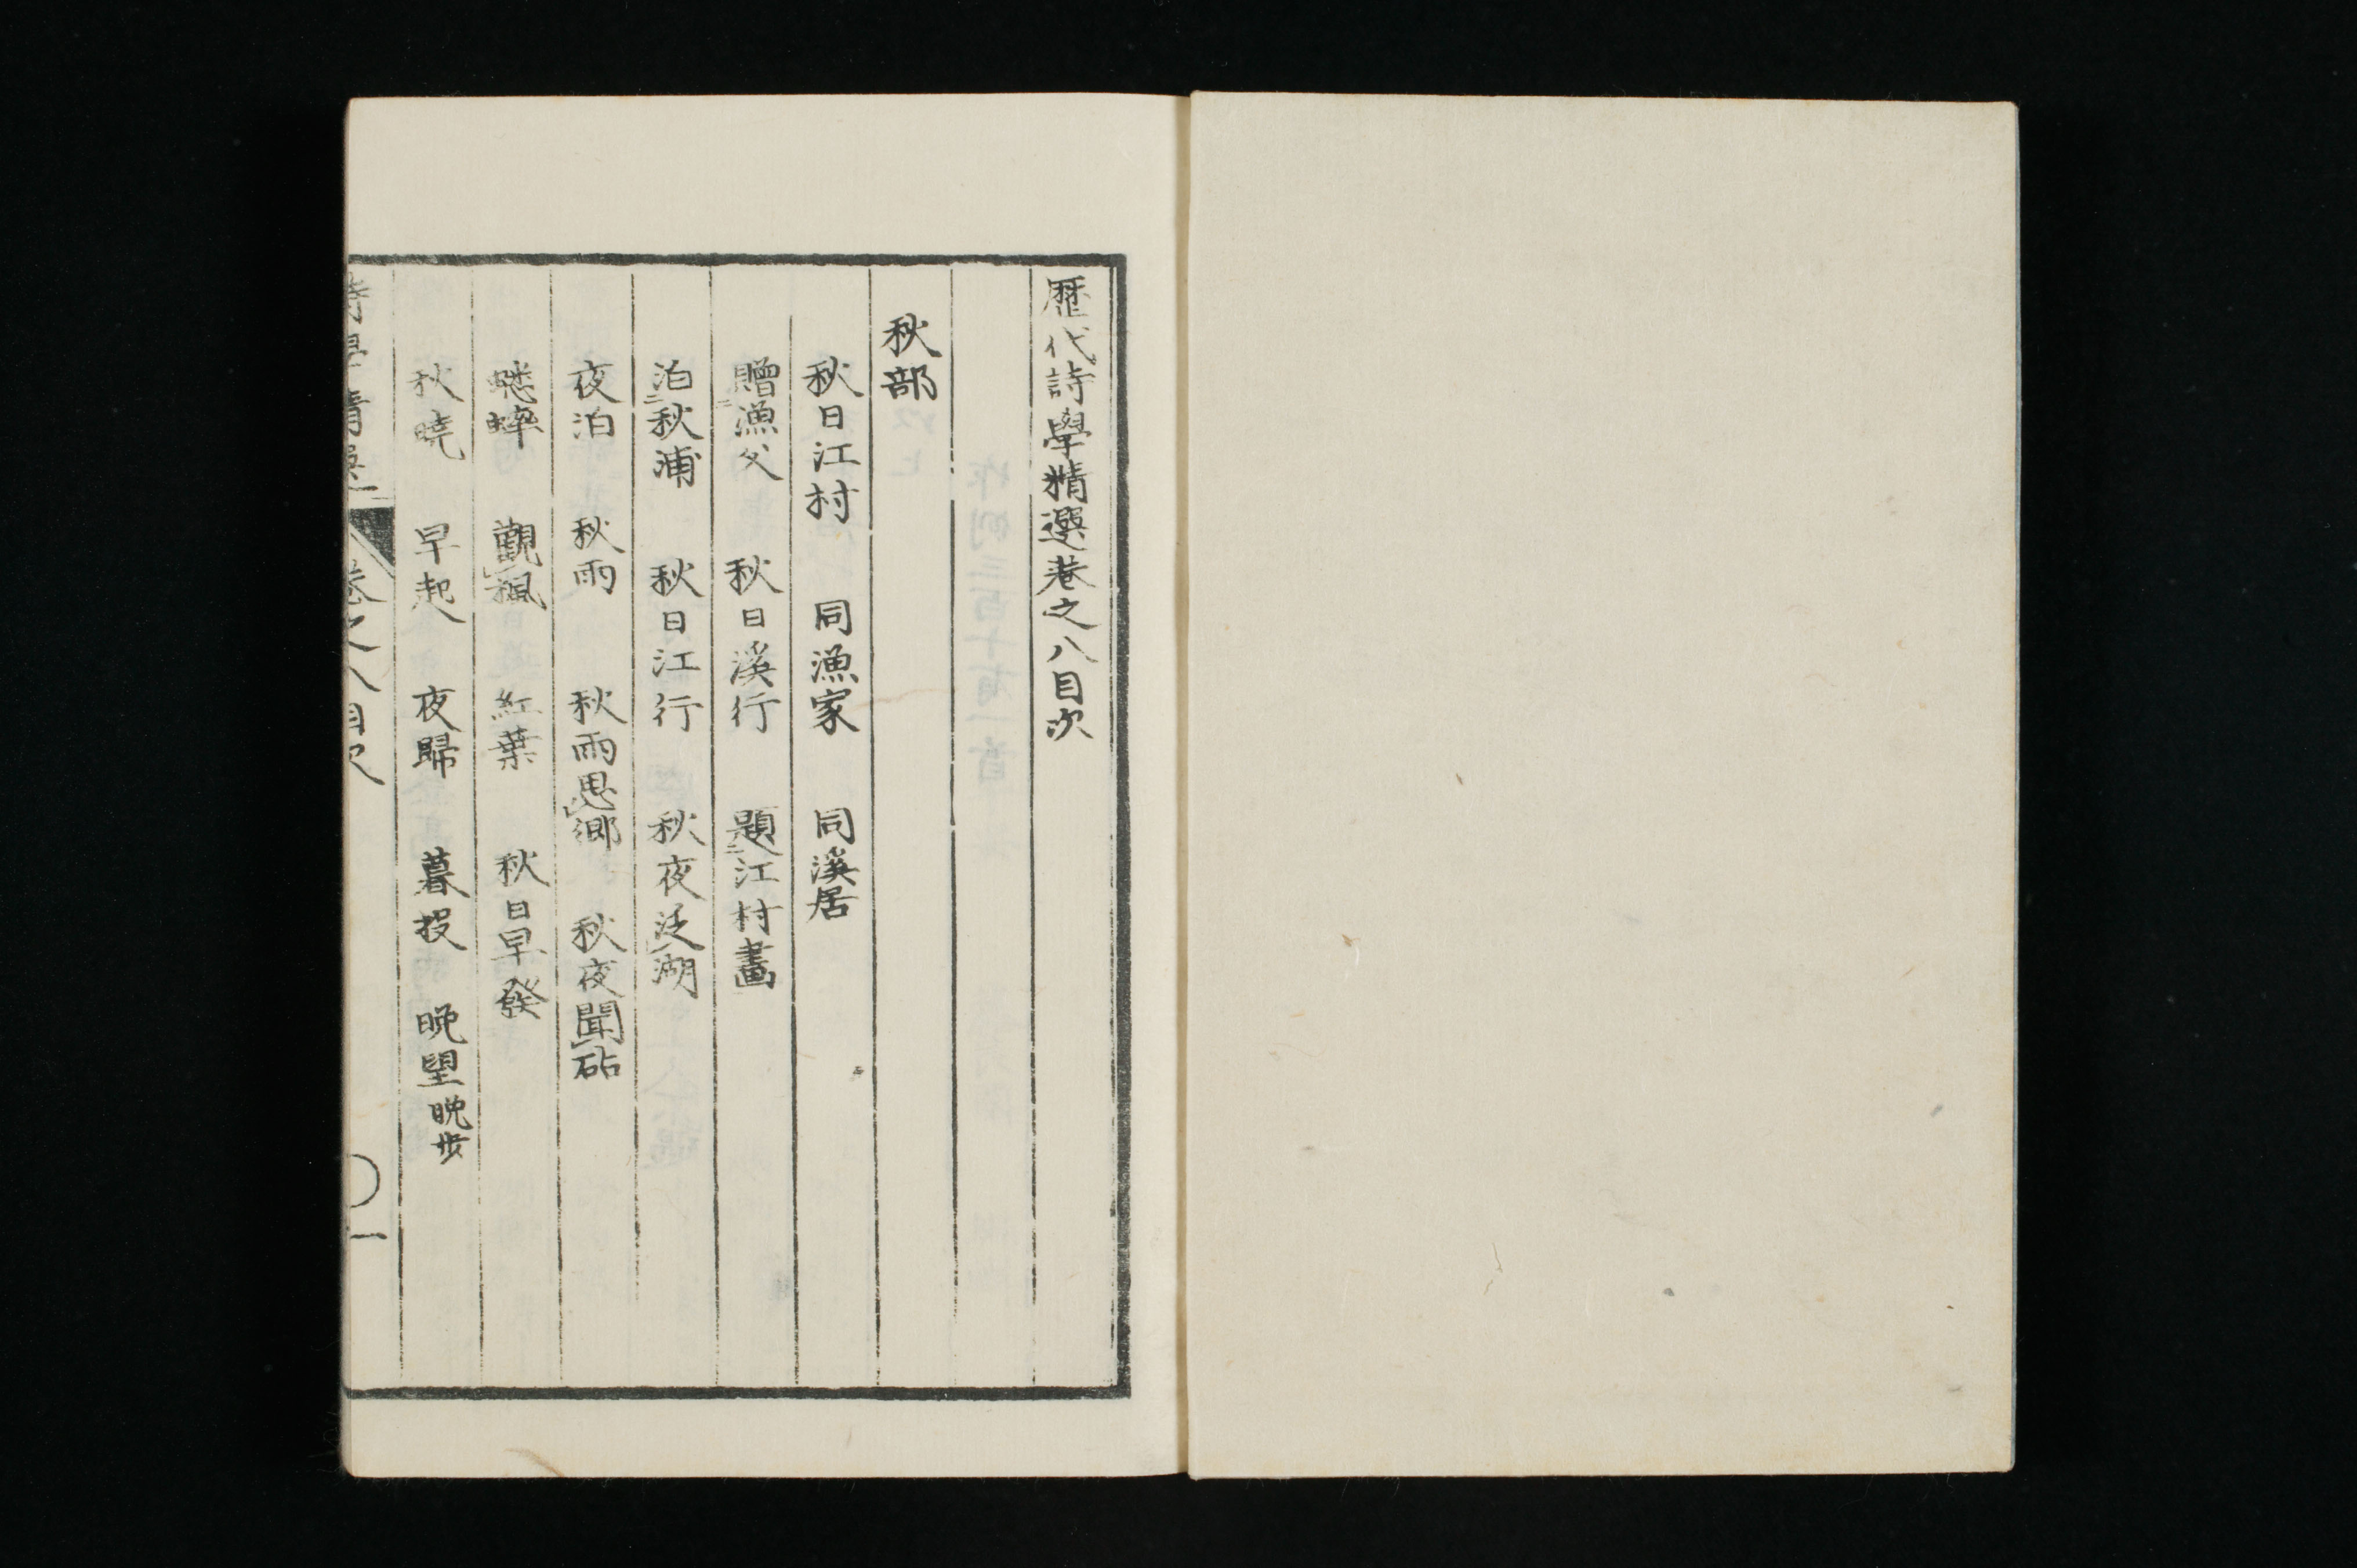 歴代詩學精選巻之八目次
秋部
秋日江村　同漁家　同溪居
贈漁父　秋日溪行　題江村畫
泊秋浦　秋日江行　秋夜泛湖
夜泊　秋雨　秋雨思鄉　秋夜聞砧
蟋蟀　觀楓　紅葉　秋日早發
秋曉　早起　夜歸　暮投　晚望晚步
詩學精選　卷之八目次　〇一